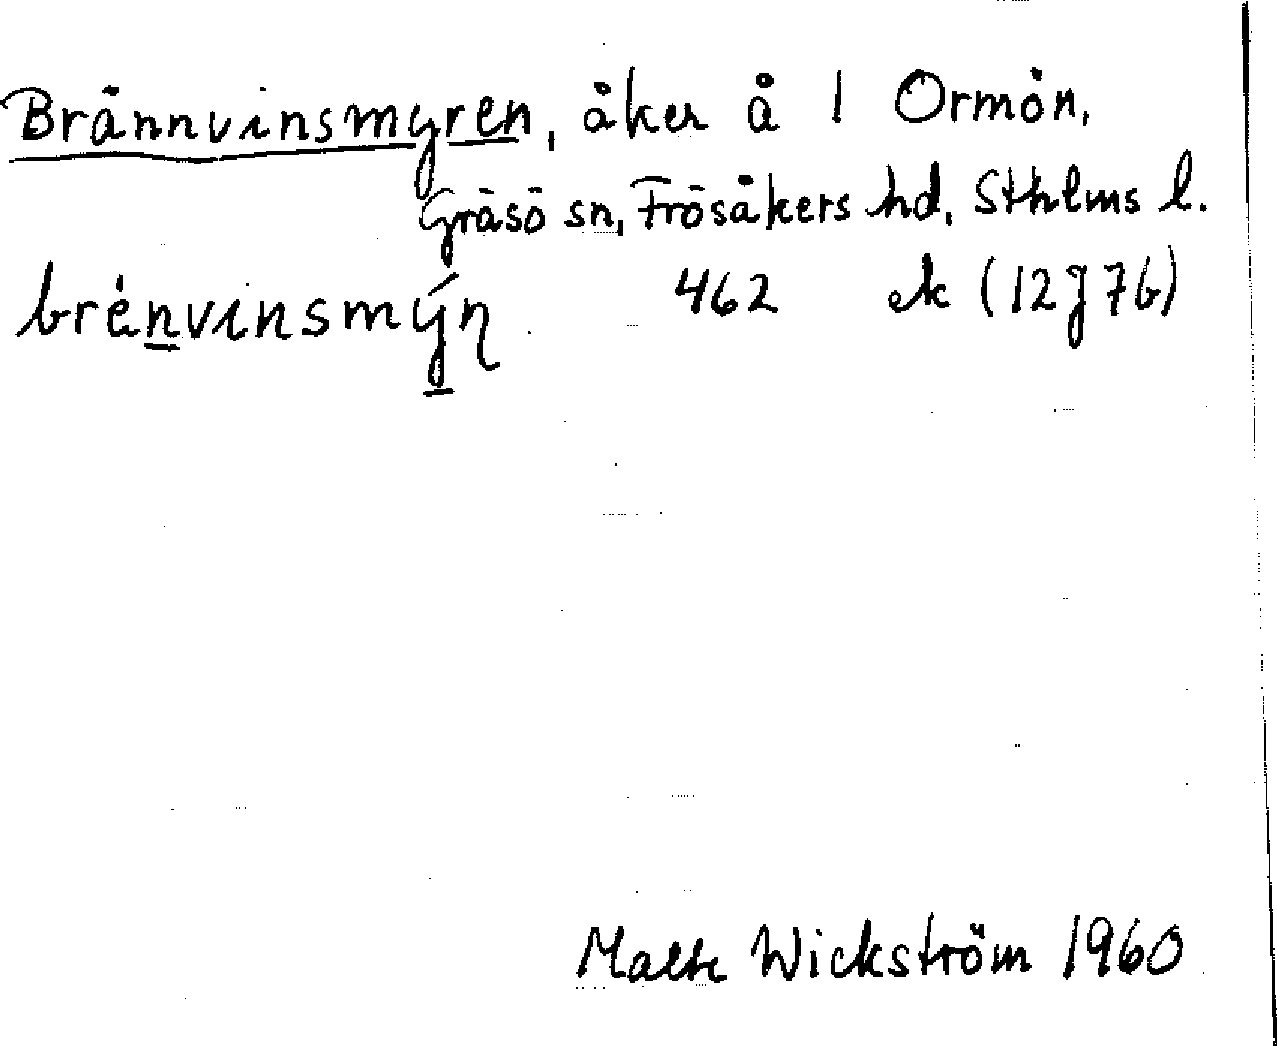 Brännvinsmyren, åker å 1 Ormön,
Gräsö sn, Frösåkers hd, Sthlms l.
brénvinsmýn 462 ek (12g 7b)
Malte Wickström 1960